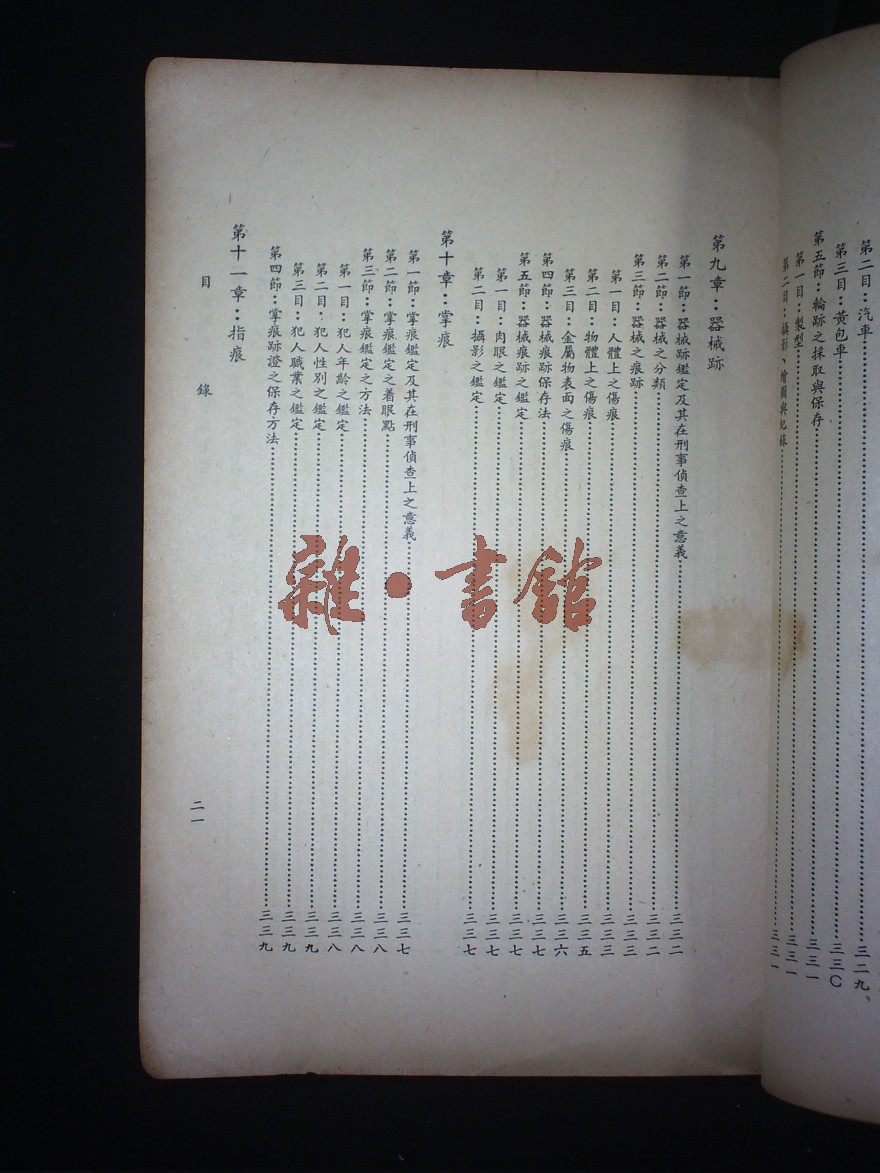 第二目：汽車……三二九
第三目：黃包車……三三〇
第五節：輪跡之採取與保存……三三一
第一目：製型……三三一
第二目：攝影、繪圖與紀錄……三三一
第九章：器械跡
第一節：器械跡鑑定及其在刑事偵查上之意義……三三二
第二節：器械之分類……三三二
第三節：器械之痕跡……三三三
第一目：人體上之傷痕……三三三
第二目：物體上之傷痕……三三五
第三目：金屬物表面之傷痕……三三六
第四節：器械痕跡保存法……三三七
第五節：器械痕跡之鑑定……三三七
第一目：肉眼之鑑定……三三七
第二目：攝影之鑑定……三三七
第十章：掌痕
第一節：掌痕鑑定及其在刑事偵查上之意義……三三七
第二節：掌痕鑑定之着眼點……三三八
第三節：掌痕鑑定之方法……三三八
第一目：犯人年齡之鑑定……三三八
第二目：犯人性別之鑑定……三三九
第三目：犯人職業之鑑定……三三九
第四節：掌痕跡證之保存方法……三三九
第十一章：指痕
目錄
二一
雜·書館